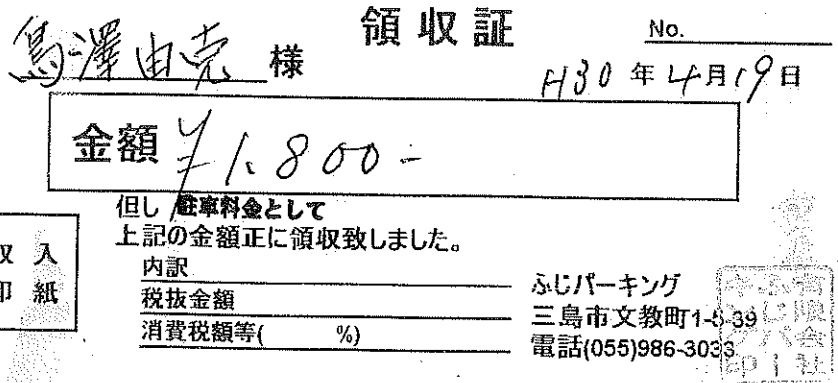 領収証
No.
鳥澤由克 様
H30 年 4月19日
金額 ¥1,800-
但し 駐車料金として
上記の金額正に領収致しました。
収入
印紙
内訳
税抜金額
消費税額等( %)
ふじパーキング
三島市文教町1-5-39
電話(055)986-3033